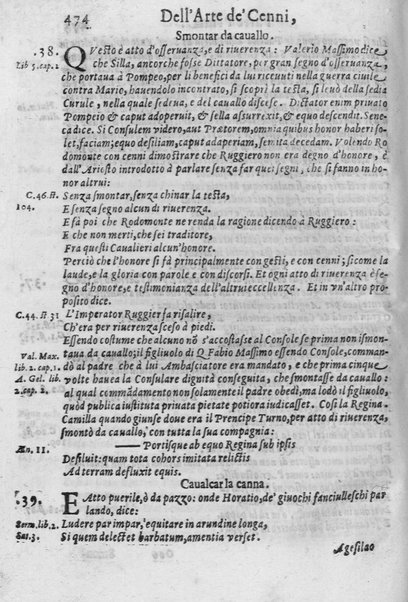 474 Dell'Arte de' Cenni,
Smontar da cauallo.
38. QVesto è atto d'osseruanza, e di riuerenza: Valerio Massimo dice
Lib 5. cap. 2 che Silla, ancorche fosse Dittatore, per gran segno d'osseruanza,
che portaua à Pompeo, per li benefici da lui riceuuti nella guerra ciuile
contra Mario, hauendolo incontrato, si scoprì la testa, si leuò della sedia
Curule, nella quale sedeua, e del cauallo discese. Dictator enim priuato
Pompeio & caput adoperuit, & sella assurrexit, & equo descendit. Sene-
ca dice. Si Consulem videro, aut Prætorem, omnia quibus honor haberi so-
let, faciam; equo desiliam, caput adaperiam, semita decedam. Volendo Ro
domonte con cenni dimostrare che Ruggiero non era degno d'honore, è
dall'Ariesto introdotto à parlare senza far quei segni, che si fanno in ho-
nor altrui:
C. 46. st Senza smontar, senza chinar la testa,
104. E senza segno alcun di riuerenza.
E fà poi che Rodomonte ne renda la ragione dicendo à Ruggiero:
E che non merti, che sei traditore,
Fra questi Caualieri alcun'honore.
Perciò che l'honore si fà principalmente con gesti, e con cenni; si come la
laude, e la gloria con parole e con discorsi. Et ogni atto di riuerenza è se-
gno d'honore, e testimonianza dell'altrui eccellenza. Et in vn'altro pro-
posito dice.
C. 44. st 31 L'Imperator Ruggier fa risalire,
Ch'era per riuerenza sceso à piedi.
Essendo costume che alcuno nõ s'accostasse al Console se prima non ismon-
Val. Max. taua da cauallo; il figliuolo di Q Fabio Massimo essendo Console, comman-
lib. 2. cap. 1. dò al padre che à lui Ambasciatore era mandato, e che prima cinque
A. Gel. lib. volte hauea la Consulare dignità conseguita, che smontasse da cauallo:
2. cap. 2. al qual commãdamento non solamente il padre obedì, ma lodò il figliuolo,
quòd publica iustituta priuata pietate potiora iudicasset. Così la Regina.
Camilla quando giunse doue era il Prencipe Turno, per atto di riuerenza,
smontò da cauallo, con tutta la sua compagnia:
Portisque ab equo Regina sub ipsis
Æn. 11. Desiluit: quam tota cohors imitata relictis
Ad terram defluxit equis.
Caualcar la canna.
39. E Atto puerile, ò da pazzo: onde Horatio, de' giuochi fanciulleschi par
lando, dice:
Serm. lib. 2. Ludere par impar, equitare in arundine longa,
Sat. 3. Si quem delectet barbatum, amentia verset.
Agesilao